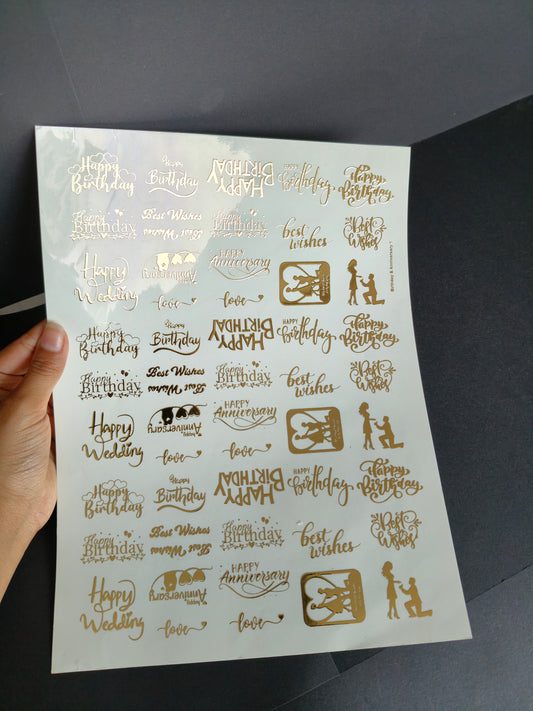 Happy
Birthday
Happy
Birthday
HAPPY
BIRTHDAY
HAPPY
birthday
Happy
Birthday
Happy
Birthday
Best Wishes
Best Wishes
Happy
Birthday
best
wishes
Best
Wishes
Happy
Wedding
Happy
Anniversary
love
HAPPY
Anniversary
love
Birthday & Anniversary 1
Happy
Birthday
Happy
Birthday
HAPPY
BIRTHDAY
HAPPY
birthday
Happy
Birthday
Happy
Birthday
Best Wishes
Best Wishes
Happy
Birthday
best
wishes
Best
Wishes
Happy
Wedding
Happy
Anniversary
love
HAPPY
Anniversary
love
Happy
Birthday
Happy
Birthday
HAPPY
BIRTHDAY
HAPPY
birthday
Happy
Birthday
Happy
Birthday
Best Wishes
Best Wishes
Happy
Birthday
best
wishes
Best
Wishes
Happy
Wedding
Happy
Anniversary
love
HAPPY
Anniversary
love